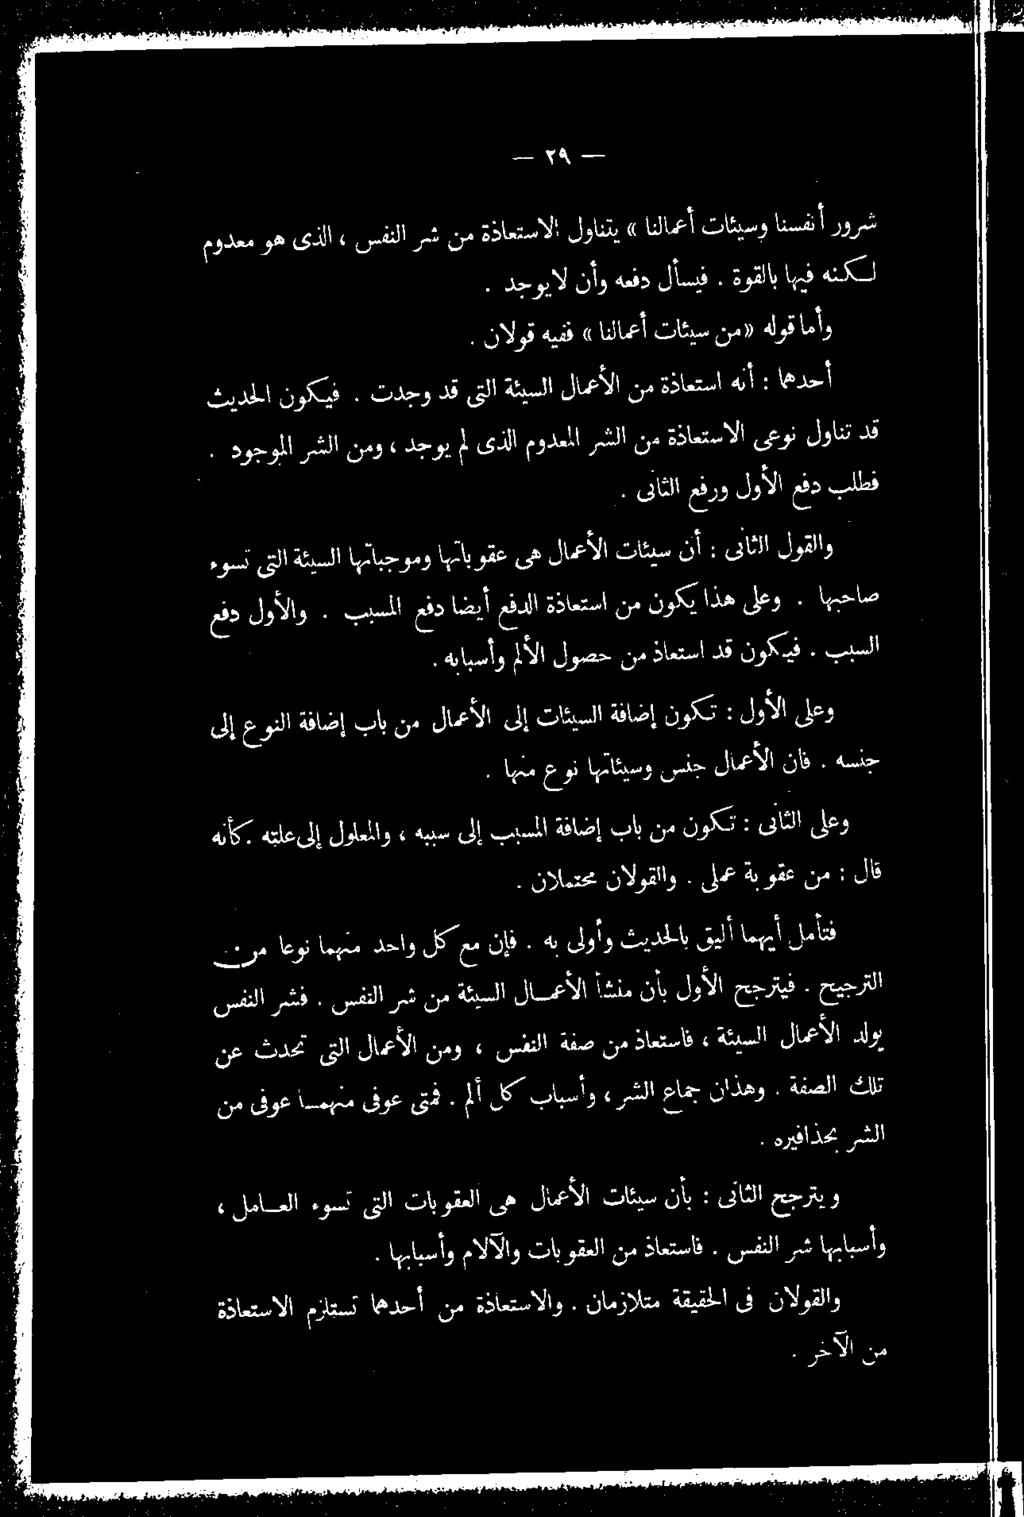 — ٢٩ —
شرور أنفسنا وسيئات أعمالنا » يتناول الاستعاذة من شر النفس ، الذى هو معدوم
لـكنه فيها بالقوة . فيسأل دفعه وأن لايوجد .
وأما قوله «من سيئات أعمالنا » ففيه قولان .
أحدهما : أنه استعاذة من الأعمال السيئة التى قد وجدت . فيكون الحديث
قد تناول نوعى الاستعاذة من الشر المعدوم الذى لم يوجد ، ومن الشر الموجود .
فطلب دفع الأول ورفع الثانى .
والقول الثانى : أن سيئات الأعمال هى عقوباتها وموجباتها السيئة التى تسوء
صاحبها . وعلى هذا يكون من استعاذة الدفع أيضا دفع المسبب . والأول دفع
السبب . فيكون قد استعاذ من حصول الألم وأسبابه .
وعلى الأول : تكون إضافة السيئات إلى الأعمال من باب إضافة النوع إلى
جنسه . فان الأعمال جنس وسيئاتها نوع منها .
وعلى الثانى : تكون من باب إضافة المسبب إلى سببه ، والمعلول إلى علته . كأنه
قال : من عقوبة عملى . والقولان محتملان .
فتأمل أيهما أليق بالحديث وأولى به . فإن مع كل واحد منهما نوعا من
الترجيح . فيترجح الأول بأن منشأ الأعمـال السيئة من شر النفس . فشر النفس
يولد الأعمال السيئة ، فاستعاذ من صفة النفس ، ومن الأعمال التى تحدث عن
تلك الصفة . وهذان جماع الشر ، وأسباب كل ألم . فمتى عوفى منهمـا عوفى من
الشر بحذافيره .
ويترجح الثانى : بأن سيئات الأعمال هى العقوبات التى تسوء العـامل ،
وأسبابها شر النفس . فاستعاذ من العقوبات والآلام وأسبابها .
والقولان فى الحقيقة متلازمان . والاستعاذة من أحدهما تستلزم الاستعاذة
من الآخر .